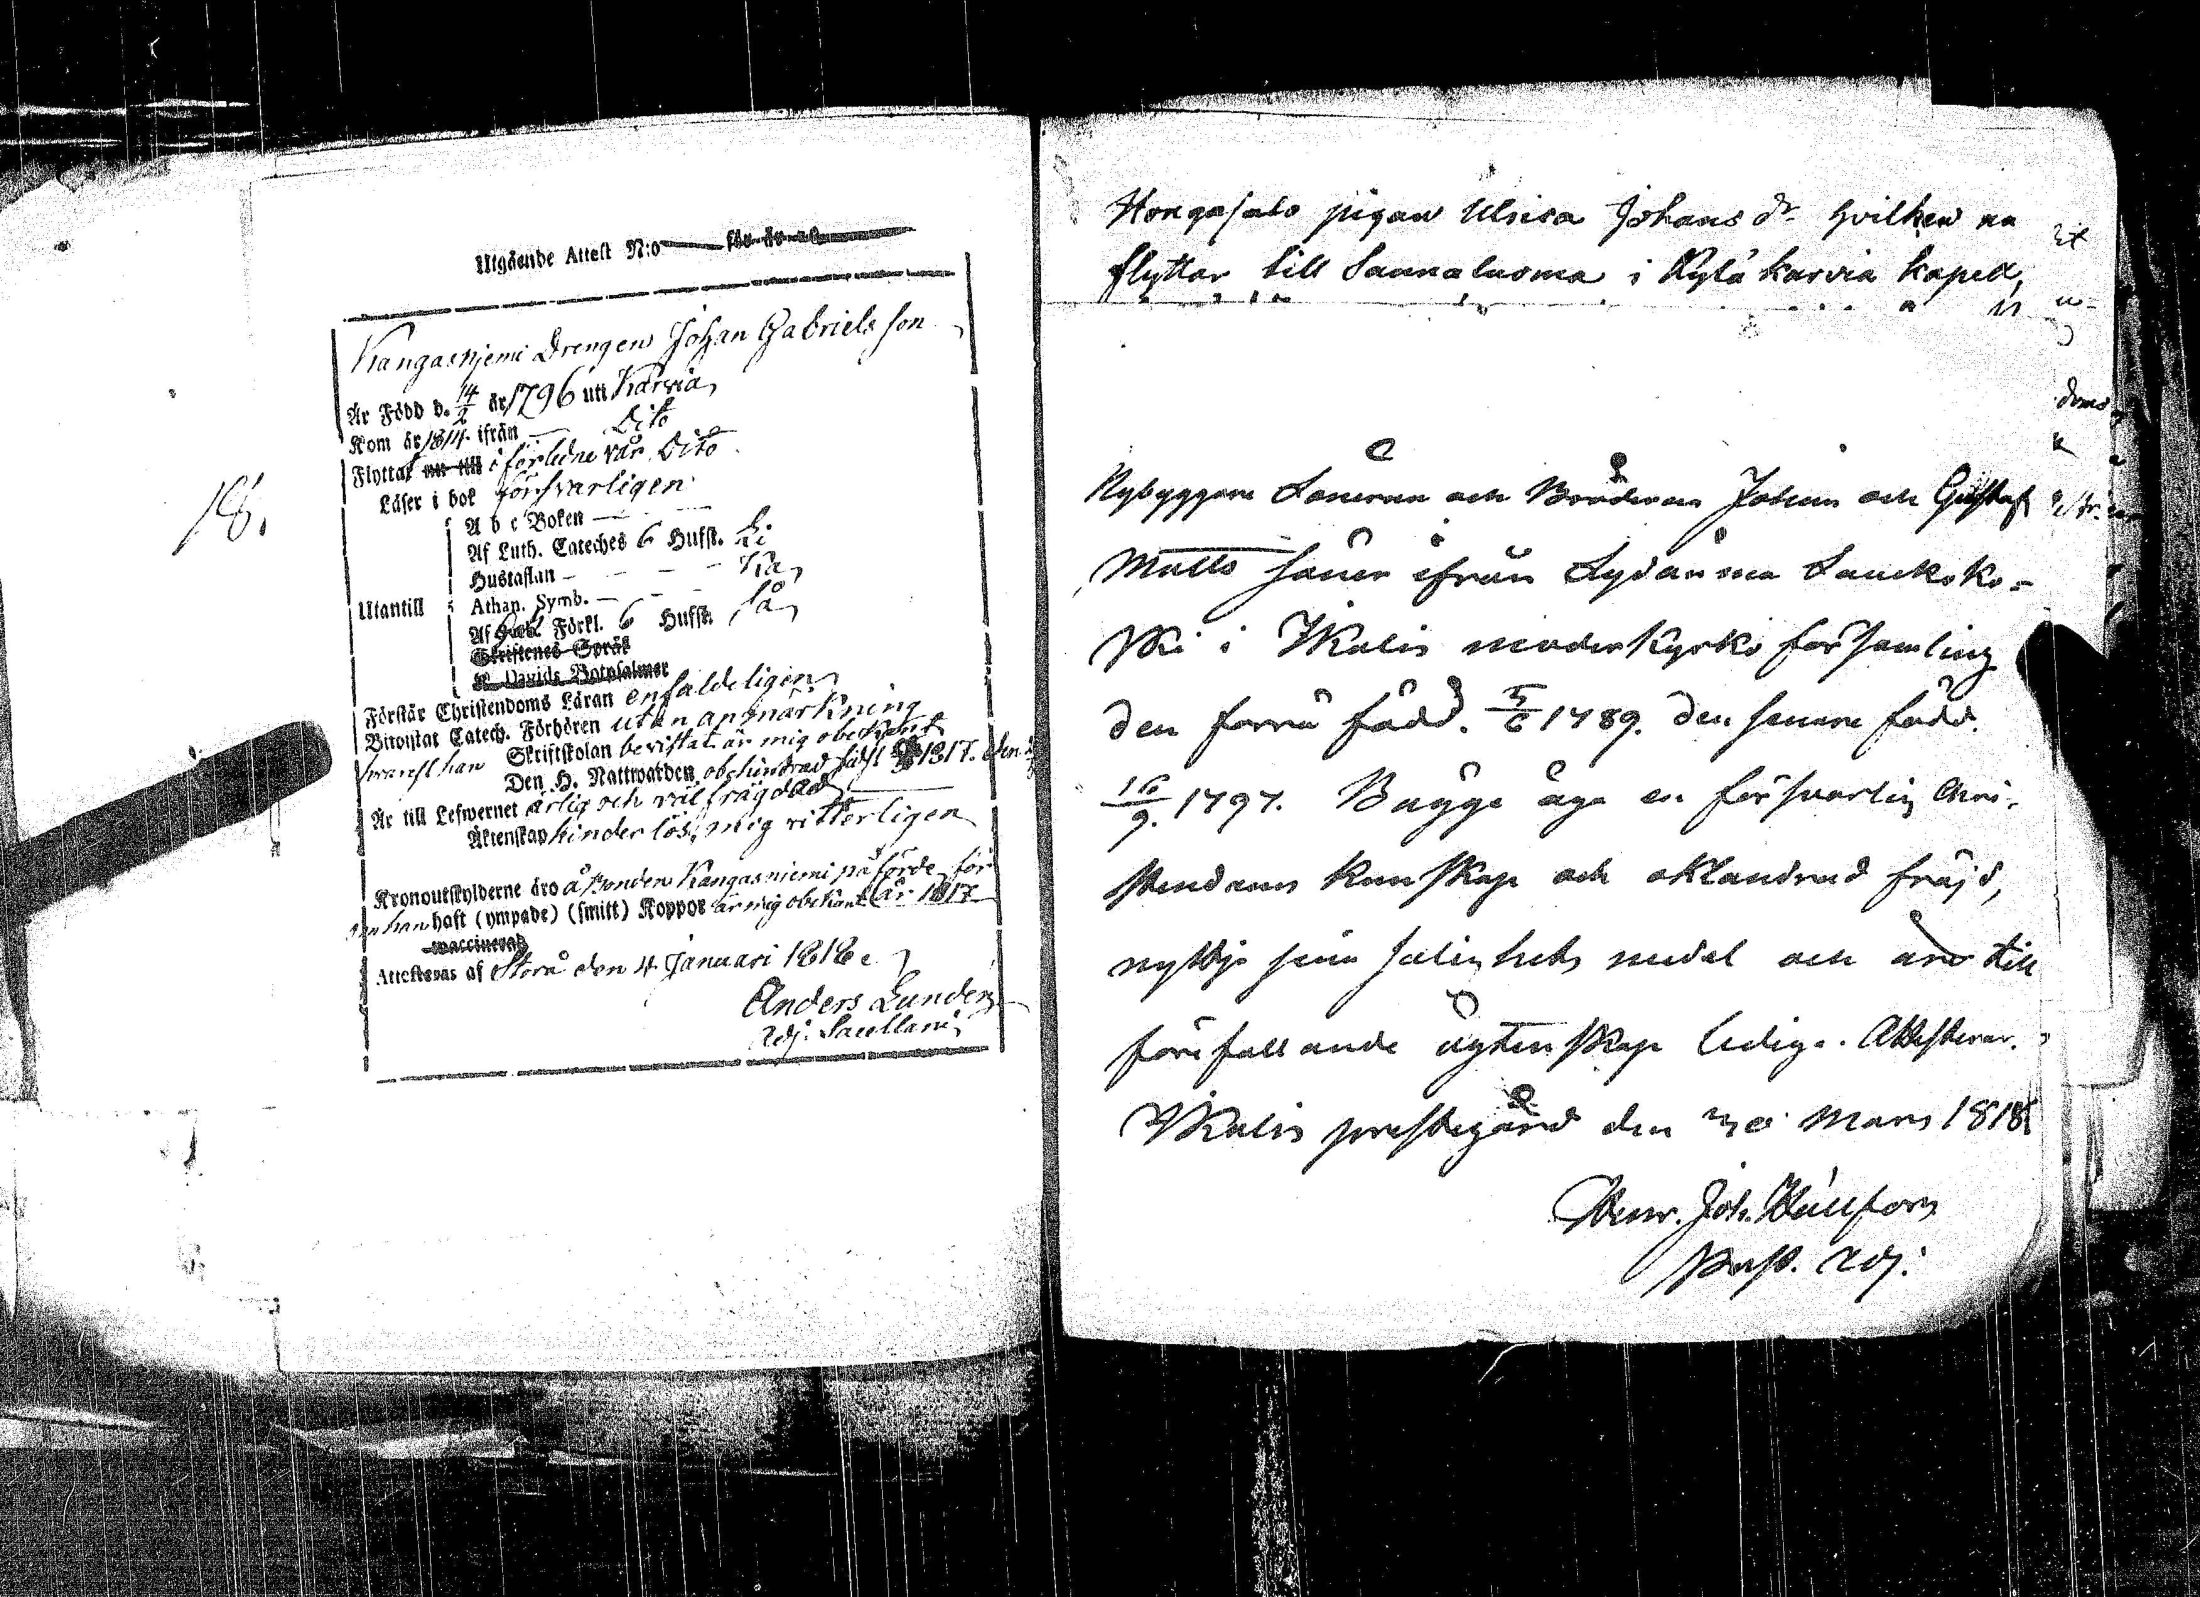 Utgående Attest N:o för år 18
Kangasnjemi Drengen Johan Gabriels son
Är Född d. 14/2 år 1796 uti Karvia
Kom år 1814. ifrån — Dito
Flyttat nu till i förledne vår Dito
Läser i bok försvarligen
A b c Boken —
Af Luth. Cateches 6 Hufst.
Hustaflan —
Utantill
Athan. Symb. —
Af Förkl. 6 Hufst.
Skriftenes Språk
Davids Botpsalmer
Förstår Christendoms Läran enfaldeligen
Bivistat Catech. Förhören utan anmärkning
Skriftskolan bevistat är mig obekant
hvarest han
Den H. Nattwarden obehindrad sidst 1817. den
Är till Lefwernet ärlig och väl frägdad
Äktenskap hinderlös, mig vitterligen
Kronoutskylderne äro å Bonden Kangasniemi påförde för
om han haft (ympade) (smitt) Koppor är mig obekant år 1817
vaccinerad
Attesteras af Storå den 4 Januari 1818
Anders Lunden
Adj. Sacellani
18.
Hongasalo pigan Ulrica Johans dr. hvilken nu
flyttar till Saunaluoma i Kylä karvia kapell,
Nybyggare Sönerna och Bröderna Johan och Gustaf
Matts söner ifrån Sydänmaa Lauckoko-
ski i Ikalis moderkyrko församling
den förra född. 5/6 1789. den senare född.
16/9. 1797. Bägge äga en försvarlig Chri-
stendoms kunskap och oklandrad fräjd,
nyttja sina salighets medel och äro till
förefallande ägtenskap ledige. Attesterar.
Ikalis prestegård den 30 Mars 1818
Henr. Joh. Hällfors
Past. Adj.